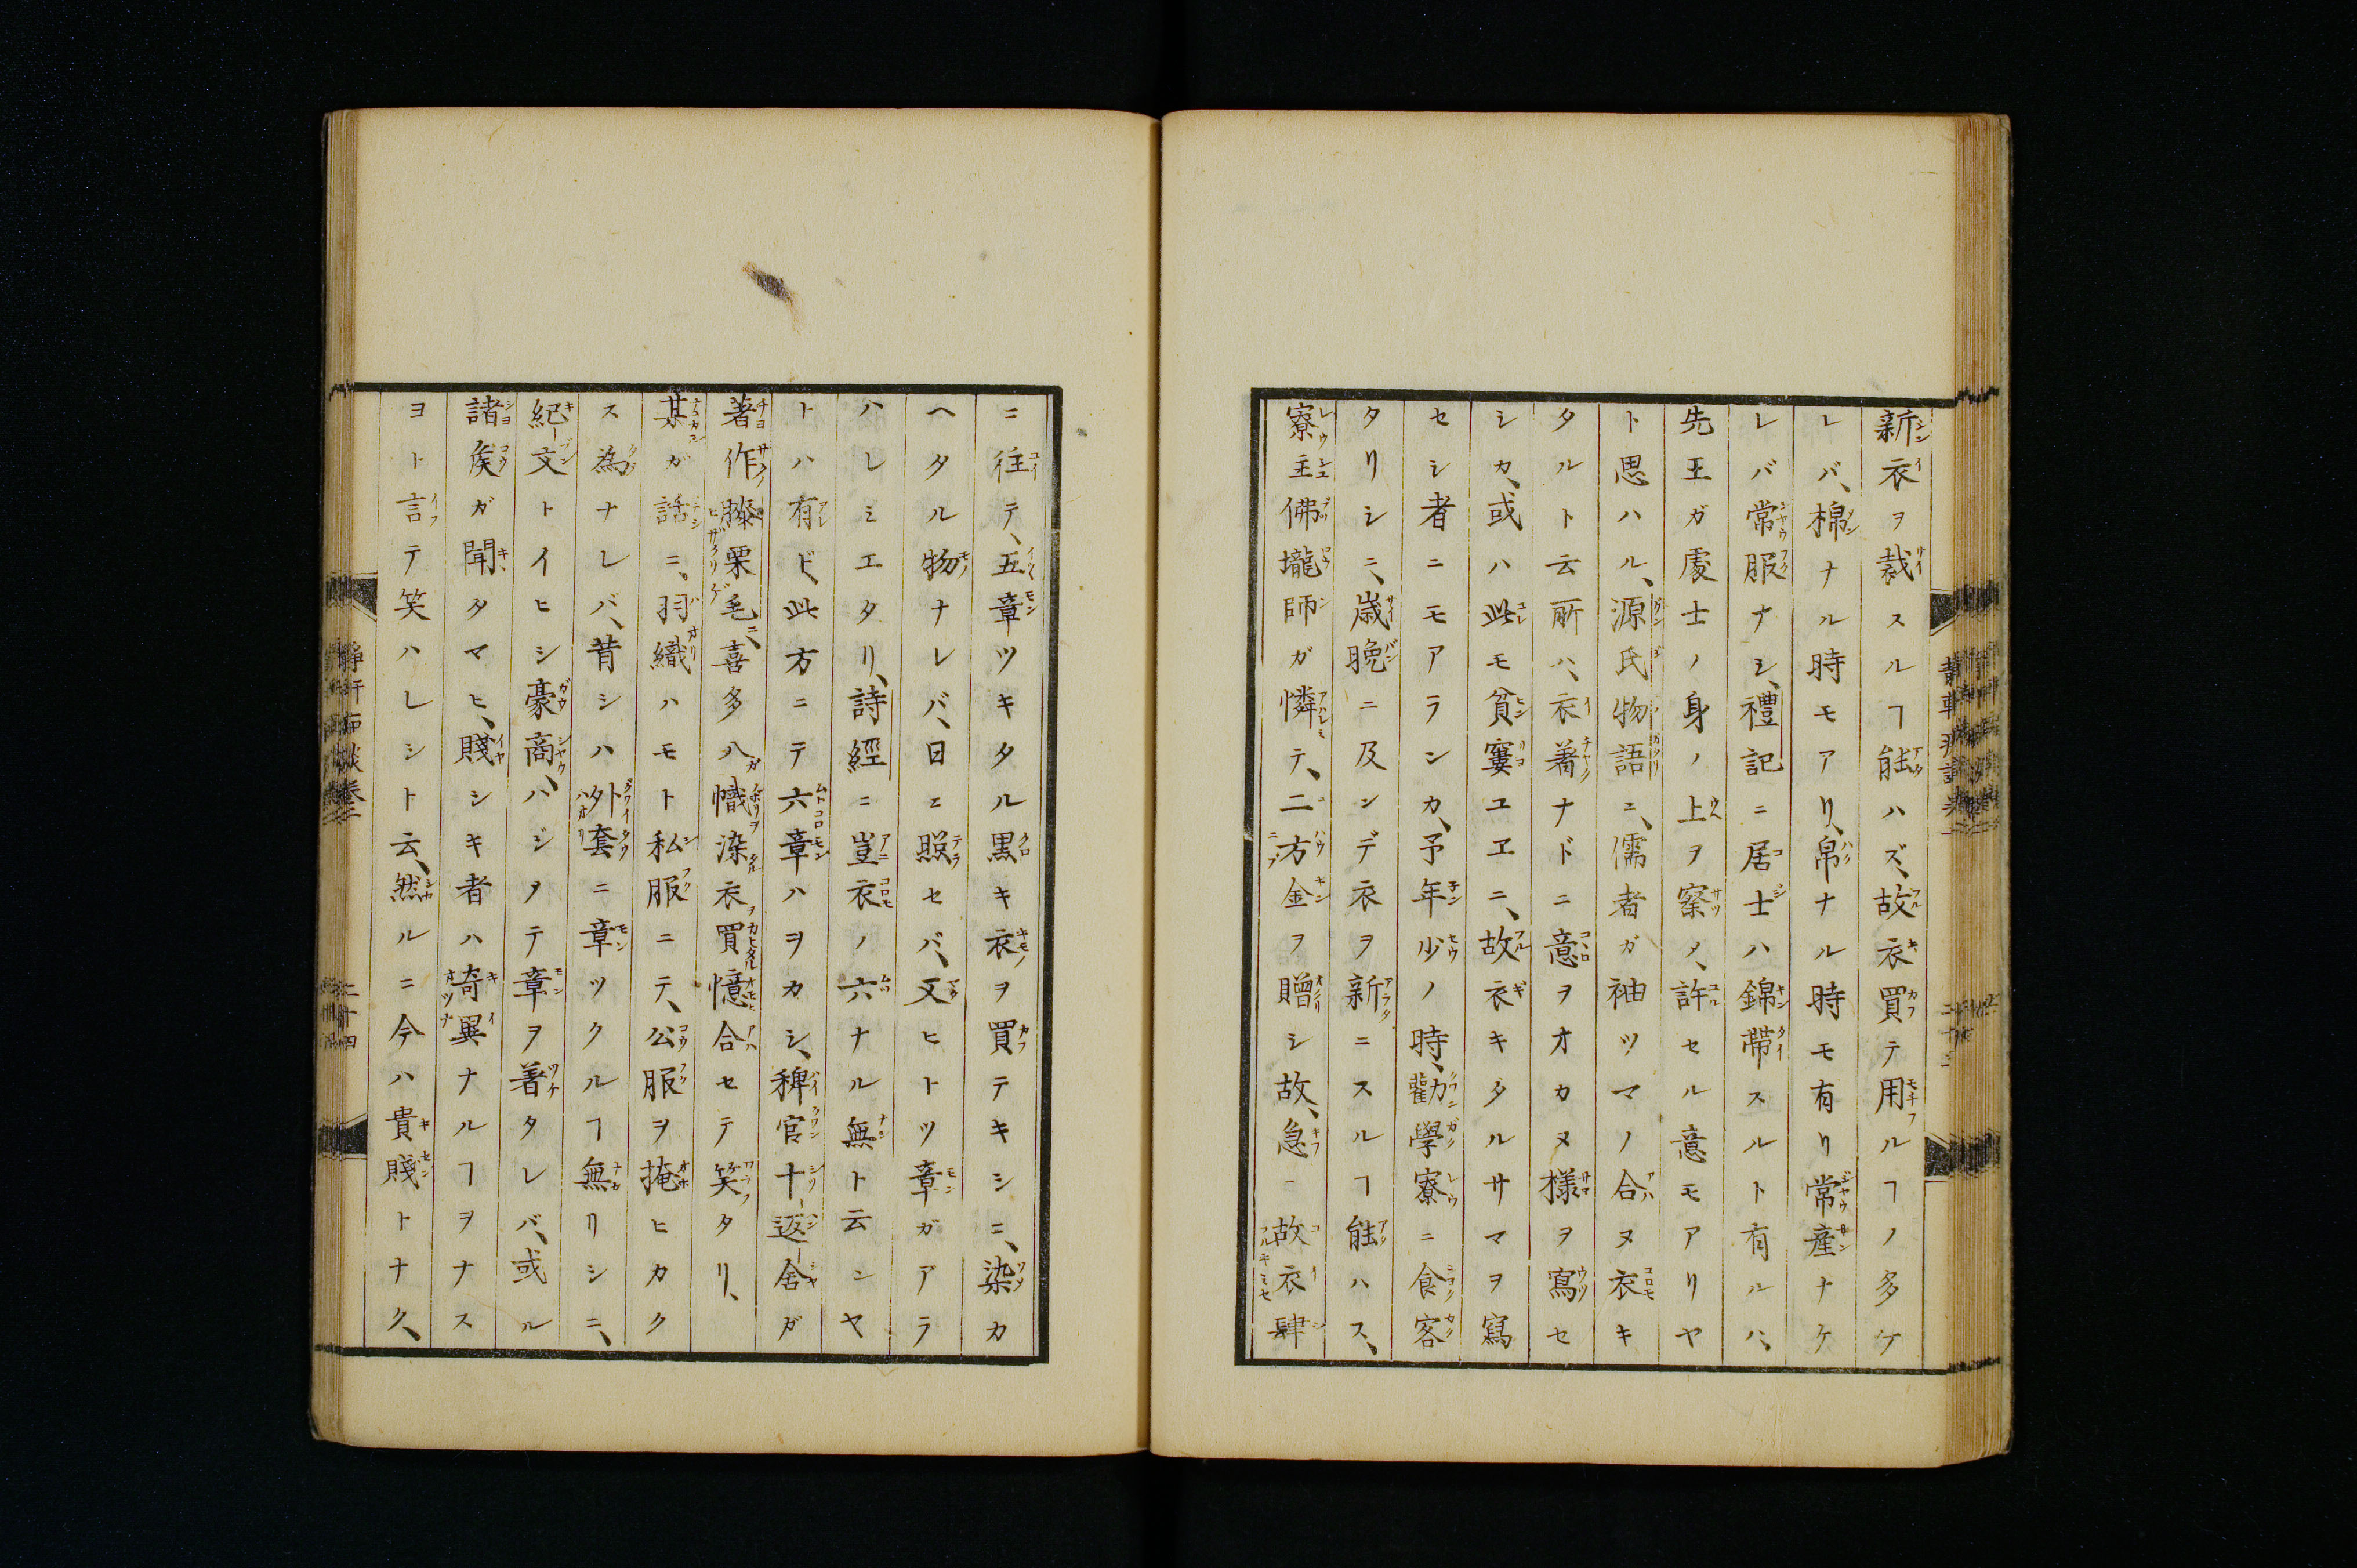 新衣ヲ裁スルヿ能ハズ、故衣買テ用ルヿノ多ケ
レバ、棉ナル時モアリ、帛ナル時モ有リ常産ナケ
レバ常服ナシ、禮記ニ居士ハ錦帶スルト有ルハ、
先王ガ處士ノ身ノ上ヲ察メ、許セル意モアリヤ
ト思ハル、源氏物語ニ、儒者ガ袖ツマノ合ヌ衣キ
タルト云所ハ、衣著ナドニ意ヲオカヌ様ヲ寫セ
シカ、或ハ此モ貧窶ユヱニ、故衣キタルサマヲ寫
セシ者ニモアランカ、予年少ノ時、勸學寮ニ食客
タリシニ、歳晩ニ及ンデ衣ヲ新ニスルヿ能ハス、
寮主佛壠師ガ憐テ、二方金ヲ贈シ故、急ニ故衣肆
ニ往テ、五章ツキタル黒キ衣ヲ買テキシニ、染カ
ヘタル物ナレバ、日ニ照セバ、又ヒトツ章ガアラ
ハレミエタリ、詩經ニ豈衣ノ六ナル無ト云ンヤ
トハ有ド、此方ニテ六章ハヲカシ、稗官十返舍ガ
著作膝栗毛ニ、喜多八ガ幟染衣買憶合セテ笑タリ、
某ガ話ニ、羽織ハモト私服ニテ、公服ヲ掩ヒカク
ス為ナレバ、昔シハ外套ニ章ツクルヿ無リシニ、
紀文トイヒシ豪商、ハジメテ章ヲ著タレバ、或ル
諸矦ガ聞タマヒ、賤シキ者ハ奇異ナルヿヲナス
ヨト言テ笑ハレシト云、然ルニ今ハ貴賤トナク、